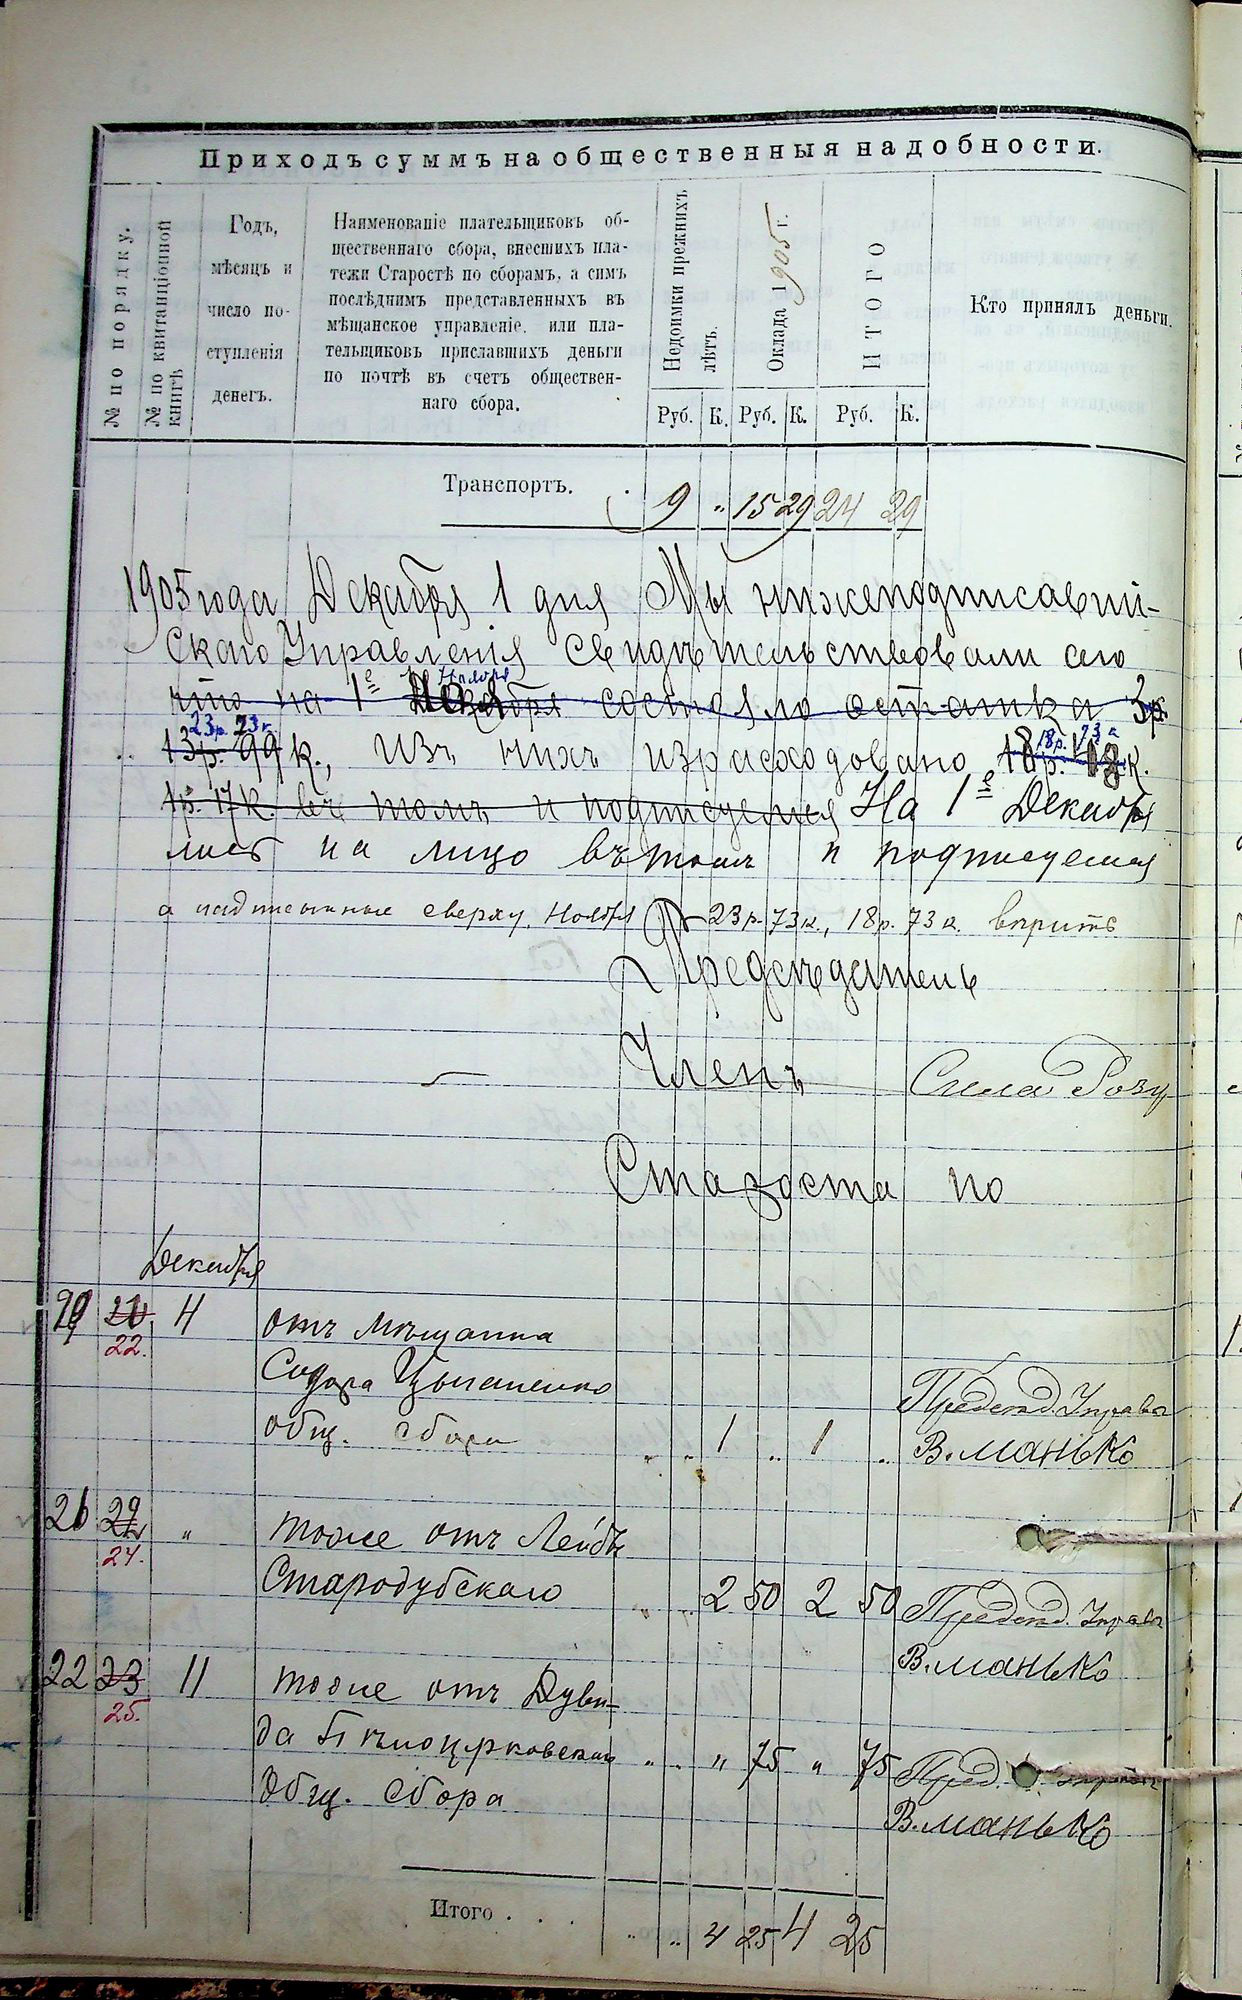 Приходъ суммъ на общественныя надобности.
№ по порядку.
№ по квитанціонной книгѣ
Годъ,
мѣсяцъ и
число по-
ступленія
денегъ.
Наименованіе плательщиковъ об-
щественнаго сбора, внесшихъ пла-
тежи Старостѣ по сборамъ, а симъ
послѣднимъ представленныхъ въ
мѣщанское управленіе, или пла-
тельщиковъ приславшихъ деньги
по почтѣ въ счетъ обществен-
наго сбора.
Недоимки прежнихъ лѣтъ.
Оклада 1905 г.
ИТОГО
Кто принялъ деньги.
Руб. К. Руб. К. Руб. К.
Транспортъ. 9 „ 15 29 24 29
1905 года Декабря 1 дня Мы нижеподписавші-
скаго Управленія свидѣтельствовали сію
Ноября
что на 1е Декабря состояло остатка 3р.
23р. 73к. 18р. 73к.
13р. 99к., изъ нихъ израсходовано 18р. 48к.
1р. 17к. въ томъ и подписуемся На 1е Декабря
лось на лицо въ томъ и подписуемся
а надписанные сверху, Ноября 23р. 73к., 18р. 73к. вѣрить
Предсѣдатель
Членъ Сила Розу
Староста по
Декабря
22.
4 отъ мѣщанина
Сидора Цыганенко
общ. сбора „ „ 1 „ 1 „
Предсѣд. Управы
В. Манько
24.
„ тоже отъ Лейбы
Стародубскаго „ „ 2 50 2 50
Предсѣд. Управы
В. Манько
22 23 11 тоже отъ Дуви-
25.
да Бѣлоцерковскаго „ „ „ 75 „ 75
Общ. сбора
Пред. Управы
В. Манько
Итого . . . „ „ 4 25 4 25